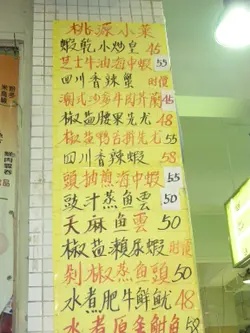 桃源小菜
蝦乾小炒皇 45
芝士牛油焗中蝦 55
四川香辣蟹 時價
潮式沙爹牛肉芥蘭 45
椒鹽腰果先尤 58
椒鹽鴨舌拼先尤 55
四川香辣蝦 58
頭抽煎海中蝦 55
豉汁蒸魚雲 50
天麻魚雲 50
椒鹽瀨尿蝦 時價
剁椒蒸魚頭 50
水煮肥牛鮮魷 48
水煮